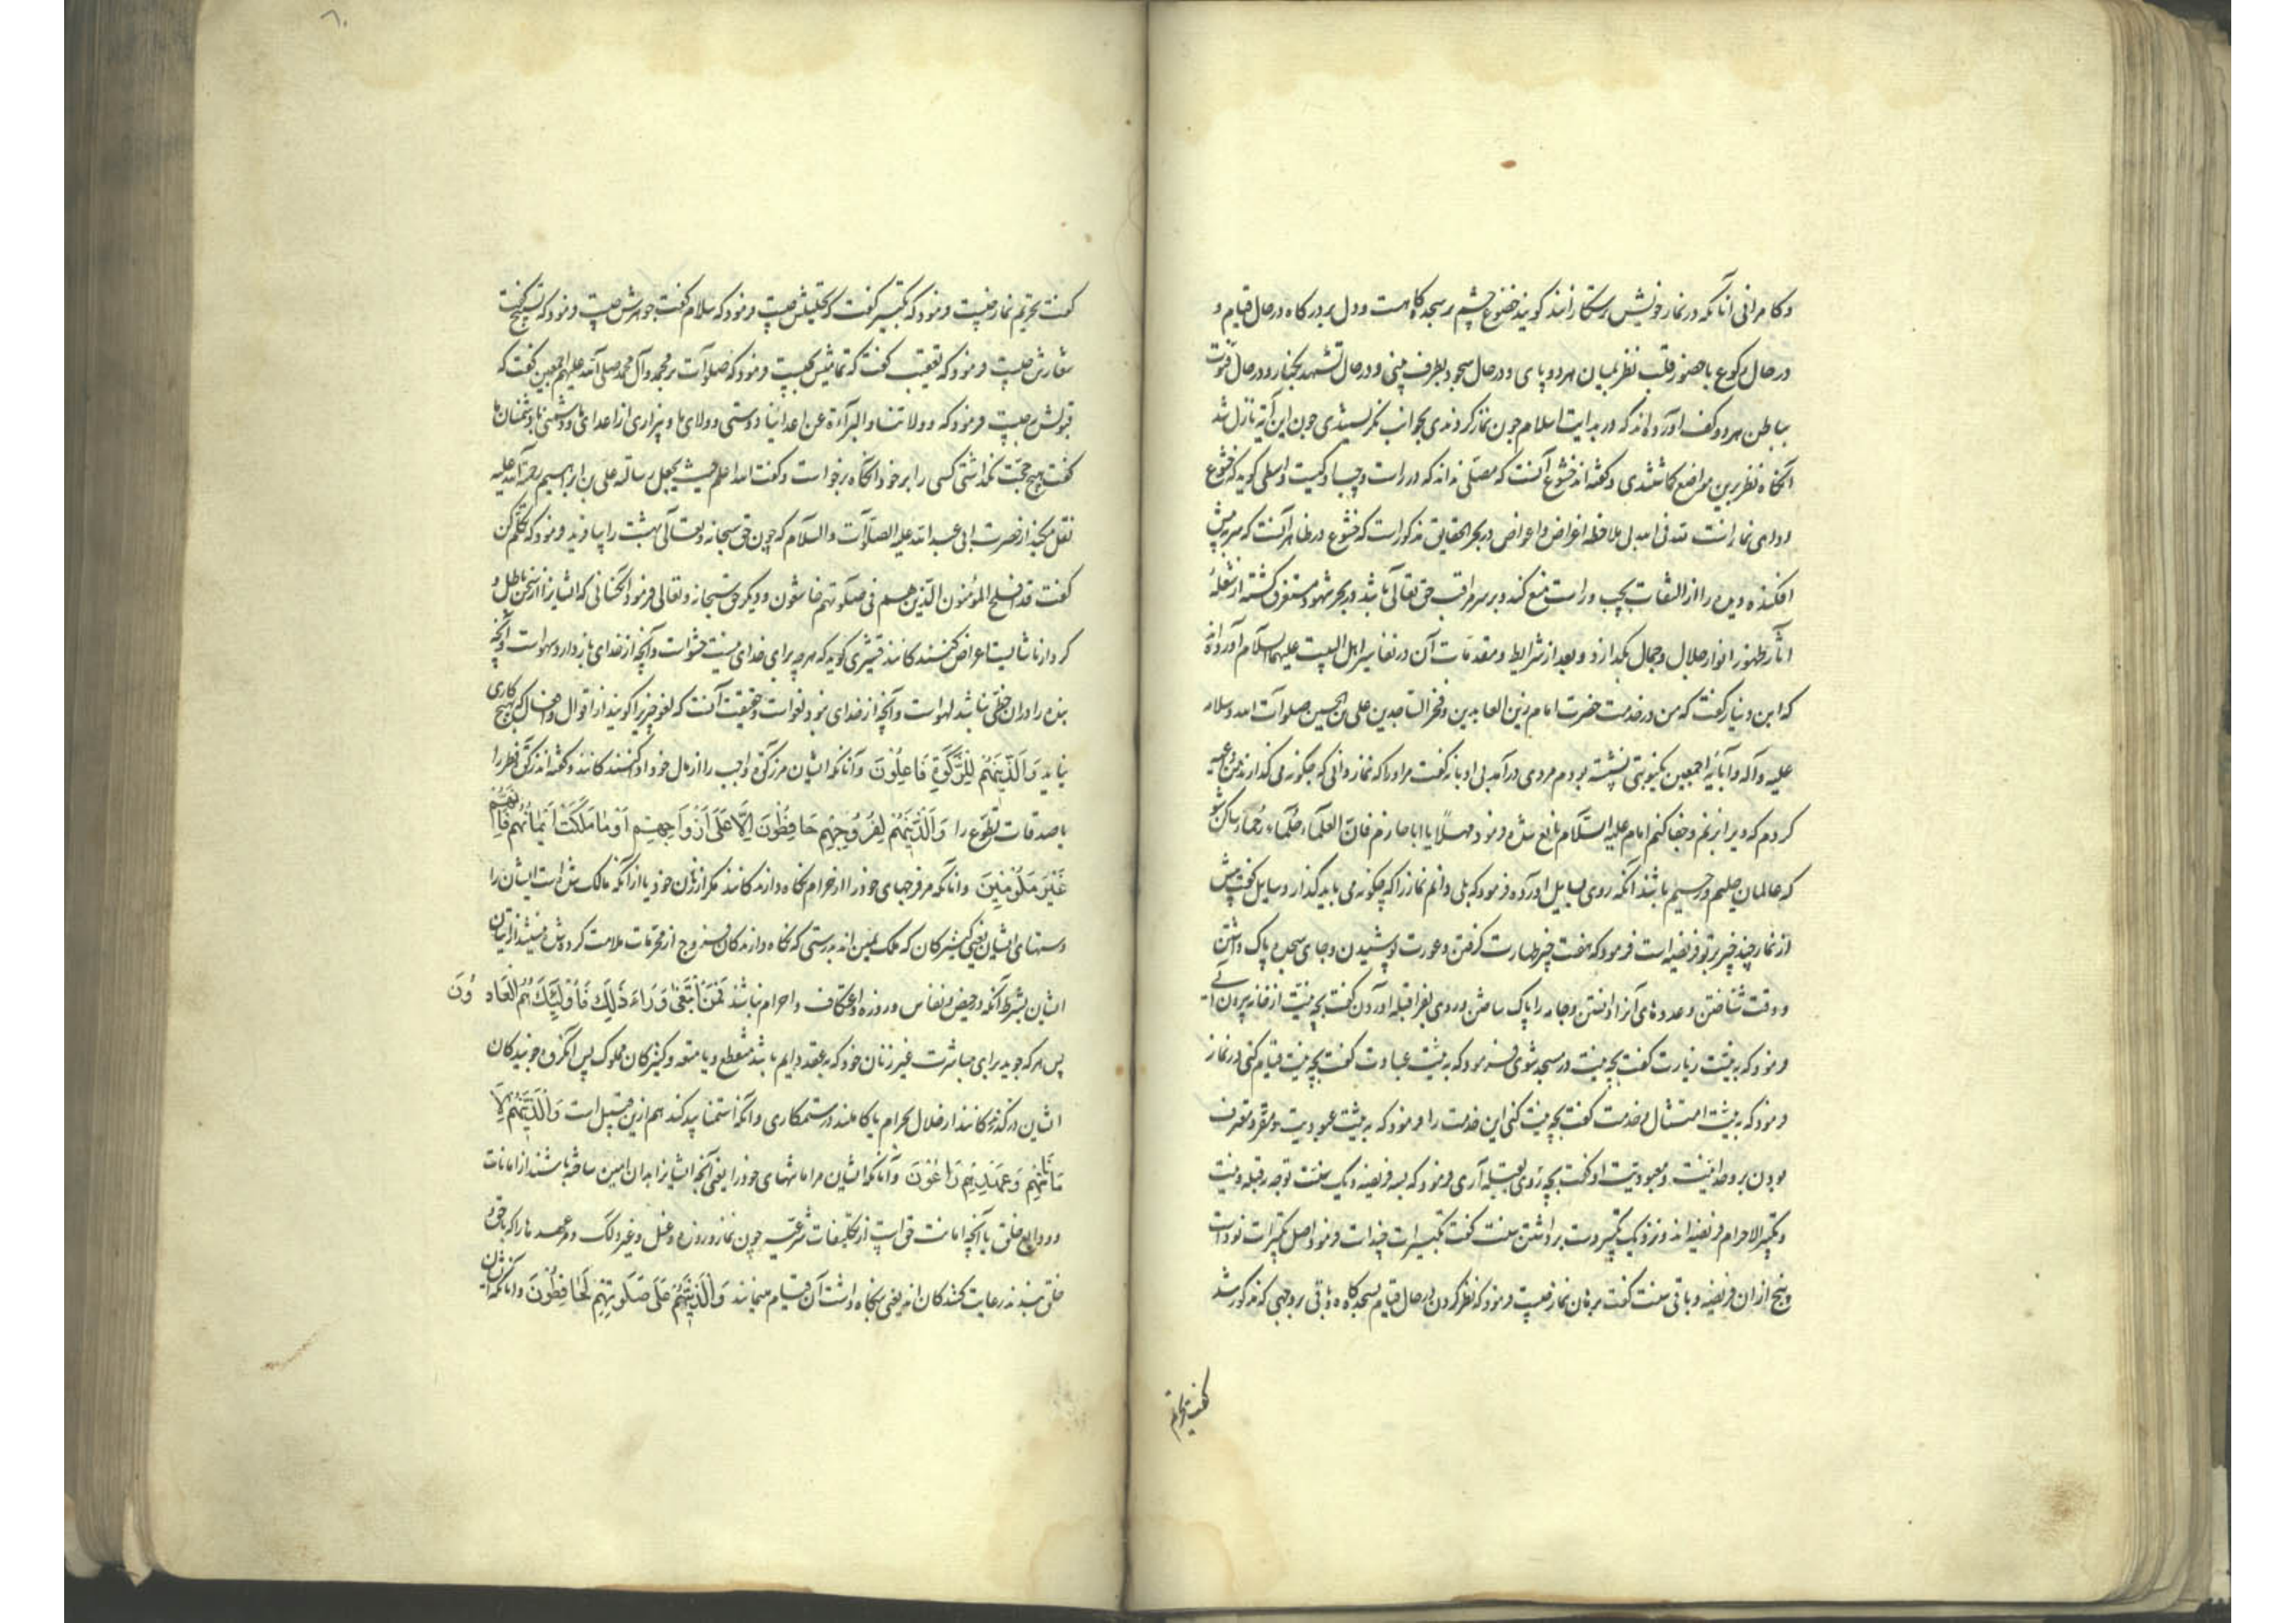 وکامرانی آنانکه در نماز خویش رستکارانند کویند خضوع چشم بر سجده کاهست و دل بر درکاه در حال قیام و
در حال رکوع با حضور قلب نظر بمیان هر دو پای و در حال سجود بطرف بینی و در حال تشهد بکنار و در حال قنوت
بباطن هر دو کف آورده اند که در بدایت اسلام چون نماز کردندی بجوانب نکریستندی چون این آیة نازل شد
آنکاه نظر برین مواضع کماشتندی و کفته اند خشوع آنست که مصلّی نداند که در راست و چپ او کیست واسطی کوید که خشوع
ادای نماز است لله فی الله بی ملاحظه اغراض و اعواض در بحر الحقایق مذکور است که خشوع در ظاهر آنست که سر پیش
افکنده و دیده را از التفات بچپ و راست منع کند و بر سر مراقب حق تعالی باشد و در بحر شهود مستغرق کشته از شعلهٔ
آثار ظهور انوار جلال و جمال بکدازد و بعد از شرایط و مقدمات آن در تفاسیر اهل البیت علیهم السلام آورده اند
که ابن دینار کفت که من در خدمت حضرت امام زین العابدین و فخر الساجدین علی بن الحسین صلوات الله و سلامه
علیه و آله و آبائه اجمعین نشسته بودم مردی درآمد بی ادبانه کفت مر او را که نماز دانی که چکونه می کذارند من عجب
کردم که ویرا برنجم و جفا کنم امام علیه السلام مانع شد و فرمود مهلاً یا ابا حازم فانّ العلماء حلماء رحماء ساکن شو
که عالمان حلیم و رحیم باشند آنکه روی بسایل آورده فرمود که بلی دانم نماز را که چکونه می باید کذارد سایل کفت پیش
از نماز چند چیز بر تو فریضه است فرمود که هفت چیز طهارت کرفتن و عورت پوشیدن و جای سجده پاک داشتن
و وقت شناختن و عددهای آنرا دانستن و جامه را پاک ساختن و روی بقبله آوردن کفت بچه نیت از خانه بیرون آئی
فرمود که به نیّت زیارت کفت بچه نیت در مسجد شوی فرمود که به نیّت عبادت کفت بچه نیت قیام کنی در نماز
فرمود که به نیّت امتثال و خدمت کفت بچه نیت کنی این خدمت را فرمود که به نیّت عبودیت و مقر و معترف
بودن بر وحدانیت و معبودیت او کفت بچه روی بقبله آری فرمود که بسه فریضه و یک سنت توجه بقبله و نیت
و تکبیر الاحرام فریضه اند و نزدیک تکبیر دست برداشتن سنت کفت تکبیرات چند است فرمود اصل تکبیرات نود است
و پنج از آن فریضه و باقی سنت کفت برهان نماز چیست فرمود که نظر کردن در حال قیام بسجده کاه و باقی بر وجهی که مذکور شد
کفت تحریم
کفت تحریم نماز چیست فرمود که تکبیر کفت که تحلیلش چیست فرمود که سلام کفت جوهرش چیست فرمود که تسبیح کفت
شعارش چیست فرمود که تعقیب کفت که تمامیتش بچیست فرمود که صلوات بر محمد و آل محمد صلی الله علیهم اجمعین کفت که
قبولش بچیست فرمود که وولایتنا والبرآءة عن اعدائنا دوستی و ولای ما و بیزاری از اعدای ما و دشمنی با دشمنان ما
کفت هیچ حجّت نکذاشتی کسی را بر خود آنکاه برخواست و کفت الله اعلم حیث یجعل رسالته علی بن ابراهیم رحمة الله علیه
نقل میکند از حضرت ابی عبد الله علیه الصلوات والسلام که چون حق سبحانه و تعالی بهشت را بیافرید فرمود که تکلّم کن
کفت قد افلح المؤمنون الذین هم فی صلوتهم خاشعون و دیکر حق سبحانه و تعالی فرمود آنکسانی که ایشان از سخن باطل و
کردار ناشایست اعراض کنندکانند قشیری کوید که هر چه برای خدای نیست حشو است و آنچه از خدای بازدارد سهو است و آنچه
بنده را در آن حظّی باشد لهو است و آنچه از خدای نبود لغو است و حقیقت آنست که لغو چیزی را کویند از اقوال و افعال که بهیچ کاری
نیاید وَالَّذِينَهُمْ لِلزَّكَوةِ فَاعِلُونَ و آنانکه ایشان مر زکوة واجب را از مال خود ادا کنندکانند و کفته اند زکوة فطر را
با صدقات تطوّع را وَالَّذِينَهُمْ لِفُرُوجِهِمْ حَافِظُونَ اِلَّا عَلَى اَزْوَاجِهِمْ اَوْ مَا مَلَكَتْ اَيْمَانُهُمْ فَاِنَّهُمْ
غَيْرَ مَلُومِينَ و آنانکه مر فرجهای خود را از حرام نکاه دارندکانند مکر از زنان خود یا از آنکه مالک شده است ایشان را
دستهای ایشان یعنی کنیزکان که ملک یمین اند بدرستی که نکاه دارندکان فروج از محرّمات ملامت کرده شده نیستند از زنان
ایشان بشرط آنکه در حیض و نفاس و روزه و اعتکاف و احرام نباشند فَمَنِ ابْتَغَى وَرَاءَ ذَلِكَ فَأُولَئِكَ هُمُ الْعَادُونَ
پس هر که جوید برای مباشرت غیر زنان خود که بعقد دایم باشد منقطع و یا متعه و کنیزکان مملوک پس آنکروه جویندکان
ایشان درکذرندکانند از حلال بحرام یا کاملند در ستمکاری و آنکه استمنا بید کند هم ازین قبیل است وَالَّذِينَهُمْ لِاَ
مَانَاتِهِمْ وَعَهْدِهِمْ رَاعُونَ و آنانکه ایشان مر امانتهای خود را یعنی آنچه ایشانرا بدان امین ساخته باشند از امانات
و ودایع خلق یا آنچه امانت حق است از تکلیفات شرعیه چون نماز و روزه و غسل و غیر ذلک و مر عهدها را که با حق و
خلق بندند رعایت کنندکان اند یعنی بنکاه داشت آن قیام مینمایند وَالَّذِينَهُمْ عَلَى صَلَوتِهِمْ يُحَافِظُونَ و آنانکه ایشان